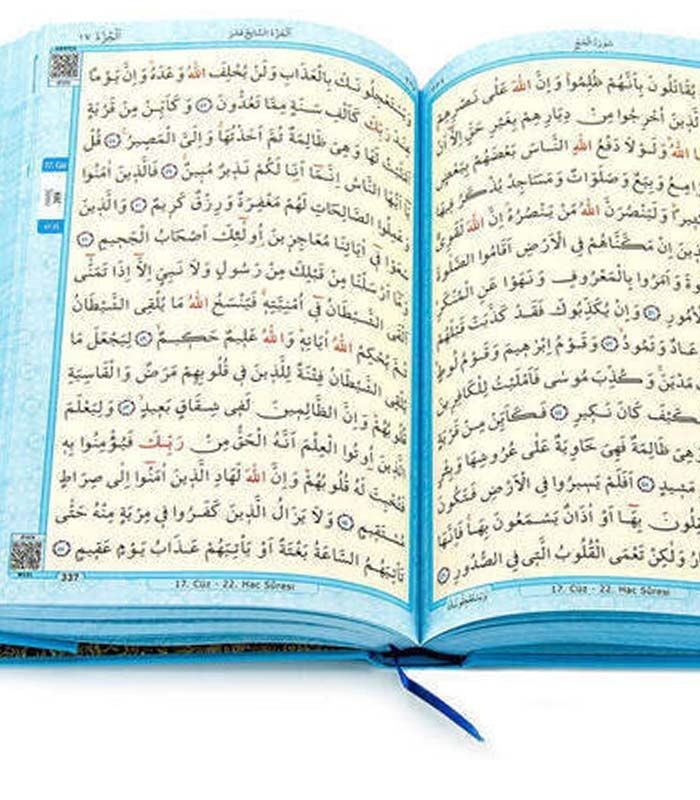 سُورَةُ الْحَجِّ
يُقَاتَلُونَ بِاَنَّهُمْ ظُلِمُوا وَاِنَّ اللّٰهَ عَلٰى نَصْرِهِمْ
لَّذِينَ اُخْرِجُوا مِنْ دِيَارِهِمْ بِغَيْرِ حَقٍّ اِلَّٓا اَنْ
اللّٰهُ وَلَوْلَا دَفْعُ اللّٰهِ النَّاسَ بَعْضَهُمْ بِبَعْضٍ
امِعُ وَبِيَعٌ وَصَلَوَاتٌ وَمَسَاجِدُ يُذْكَرُ فِيهَا
وَلَيَنْصُرَنَّ اللّٰهُ مَنْ يَنْصُرُهُ اِنَّ اللّٰهَ لَقَوِيٌّ
اِنْ مَكَّنَّاهُمْ فِي الْاَرْضِ اَقَامُوا الصَّلٰوةَ
وَاَمَرُوا بِالْمَعْرُوفِ وَنَهَوْا عَنِ الْمُنْكَرِ
وَاِنْ يُكَذِّبُوكَ فَقَدْ كَذَّبَتْ قَبْلَهُمْ
عَادٌ وَثَمُودُ وَقَوْمُ اِبْرٰهِيمَ وَقَوْمُ لُوطٍ
مَدْيَنَ وَكُذِّبَ مُوسٰى فَاَمْلَيْتُ لِلْكَافِرِينَ
كَيْفَ كَانَ نَكِيرِ فَكَاَيِّنْ مِنْ قَرْيَةٍ
هِيَ ظَالِمَةٌ فَهِيَ خَاوِيَةٌ عَلٰى عُرُوشِهَا وَبِئْرٍ
مَشِيدٍ اَفَلَمْ يَسِيرُوا فِي الْاَرْضِ فَتَكُونَ
بِهَا اَوْ اٰذَانٌ يَسْمَعُونَ بِهَا فَاِنَّهَا
وَلٰكِنْ تَعْمَى الْقُلُوبُ الَّتِي فِي الصُّدُورِ
وَيَسْتَعْجِلُونَكَ
17. Cüz - 22. Hac Sûresi
اَلْجُزْءُ السَّابِعُ عَشَرَ
اَلْجُزْءُ ١٧
وَيَسْتَعْجِلُونَكَ بِالْعَذَابِ وَلَنْ يُخْلِفَ اللّٰهُ وَعْدَهُ وَاِنَّ يَوْمًا
عِنْدَ رَبِّكَ كَاَلْفِ سَنَةٍ مِمَّا تَعُدُّونَ وَكَاَيِّنْ مِنْ قَرْيَةٍ
اَمْلَيْتُ لَهَا وَهِيَ ظَالِمَةٌ ثُمَّ اَخَذْتُهَا وَاِلَيَّ الْمَصِيرُ قُلْ
يَٓا اَيُّهَا النَّاسُ اِنَّمَٓا اَنَا لَكُمْ نَذِيرٌ مُبِينٌ فَالَّذِينَ اٰمَنُوا
وَعَمِلُوا الصَّالِحَاتِ لَهُمْ مَغْفِرَةٌ وَرِزْقٌ كَرِيمٌ وَالَّذِينَ
سَعَوْا فِٓي اٰيَاتِنَا مُعَاجِزِينَ اُو۬لٰٓئِكَ اَصْحَابُ الْجَحِيمِ
وَمَٓا اَرْسَلْنَا مِنْ قَبْلِكَ مِنْ رَسُولٍ وَلَا نَبِيٍّ اِلَّٓا اِذَا تَمَنّٰٓى
اَلْقَى الشَّيْطَانُ فِٓي اُمْنِيَّتِهِ فَيَنْسَخُ اللّٰهُ مَا يُلْقِي الشَّيْطَانُ
ثُمَّ يُحْكِمُ اللّٰهُ اٰيَاتِهِ وَاللّٰهُ عَلِيمٌ حَكِيمٌ لِيَجْعَلَ مَا
يُلْقِي الشَّيْطَانُ فِتْنَةً لِلَّذِينَ فِي قُلُوبِهِمْ مَرَضٌ وَالْقَاسِيَةِ
قُلُوبُهُمْ وَاِنَّ الظَّالِمِينَ لَفِي شِقَاقٍ بَعِيدٍ وَلِيَعْلَمَ
الَّذِينَ اُو۫تُوا الْعِلْمَ اَنَّهُ الْحَقُّ مِنْ رَبِّكَ فَيُؤْمِنُوا بِهِ
فَتُخْبِتَ لَهُ قُلُوبُهُمْ وَاِنَّ اللّٰهَ لَهَادِ الَّذِينَ اٰمَنُٓوا اِلٰى صِرَاطٍ
مُسْتَقِيمٍ وَلَا يَزَالُ الَّذِينَ كَفَرُوا فِي مِرْيَةٍ مِنْهُ حَتّٰى
تَأْتِيَهُمُ السَّاعَةُ بَغْتَةً اَوْ يَأْتِيَهُمْ عَذَابُ يَوْمٍ عَقِيمٍ
17. Cüz - 22. Hac Sûresi
337